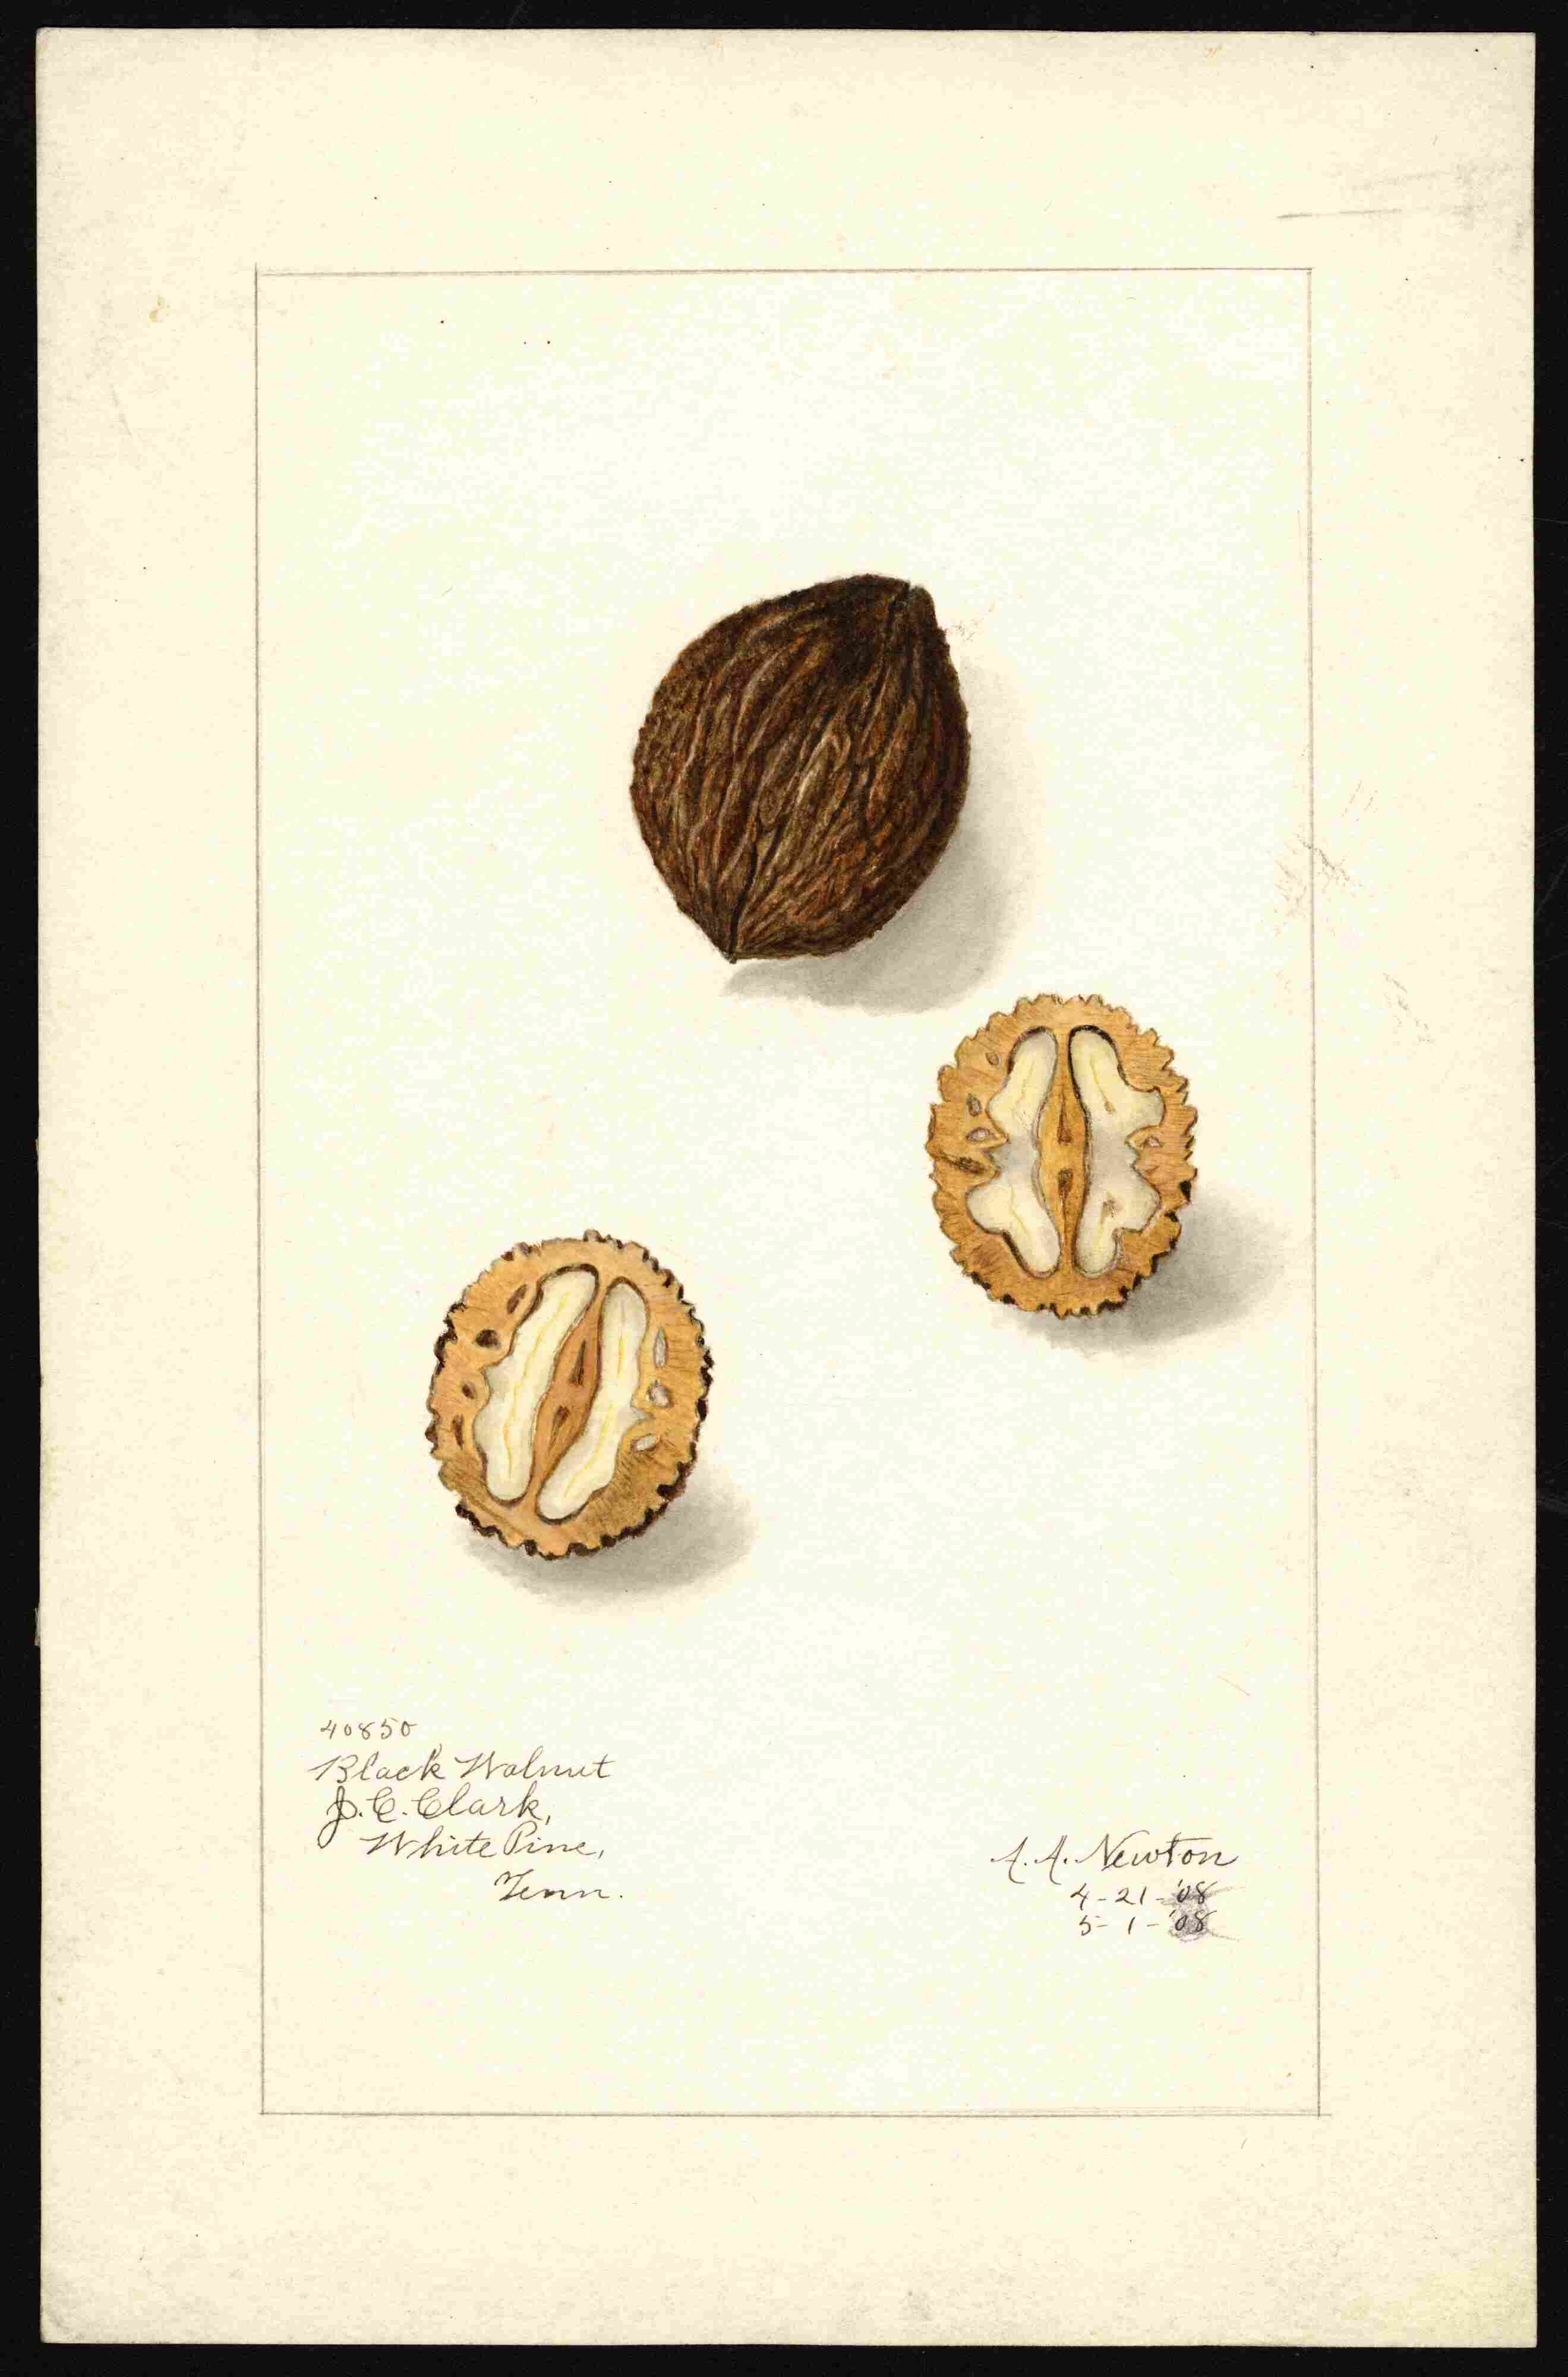 40850
Black Walnut
J. C. Clark,
White Pine,
Tenn.
A. A. Newton
4-21-'08
5-1-'08